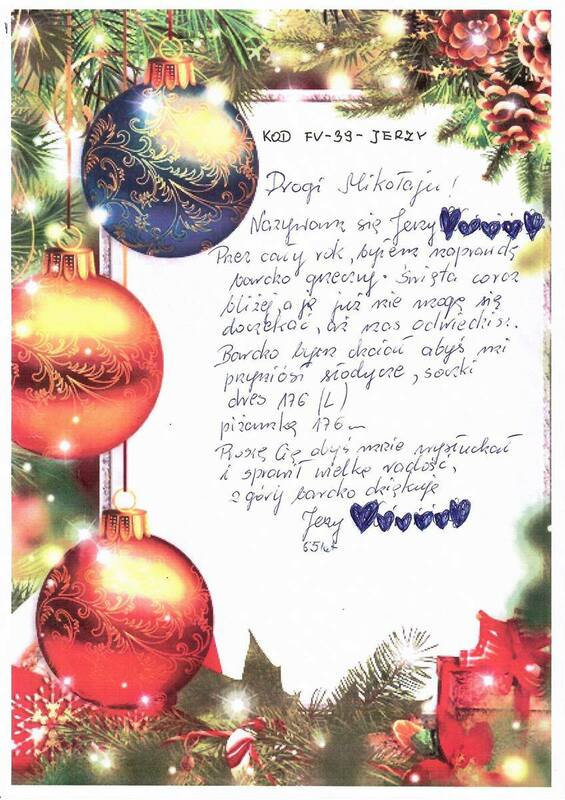 KOD FV-39-JERZY
Drogi Mikołaju!
Nazywam się Jerzy
Przez cały rok, byłem naprawdę
bardzo grzeczny. Święta coraz
bliżej, a ja już nie mogę się
doczekać, aż nas odwiedzisz.
Bardzo bym chciał abyś mi
przyniósł słodycze, soczki
dres 176 (L)
piżamkę 176
Proszę Cię abyś mnie wysłuchał
i sprawił wielką radość,
z góry bardzo dziękuję
Jerzy
65 lat